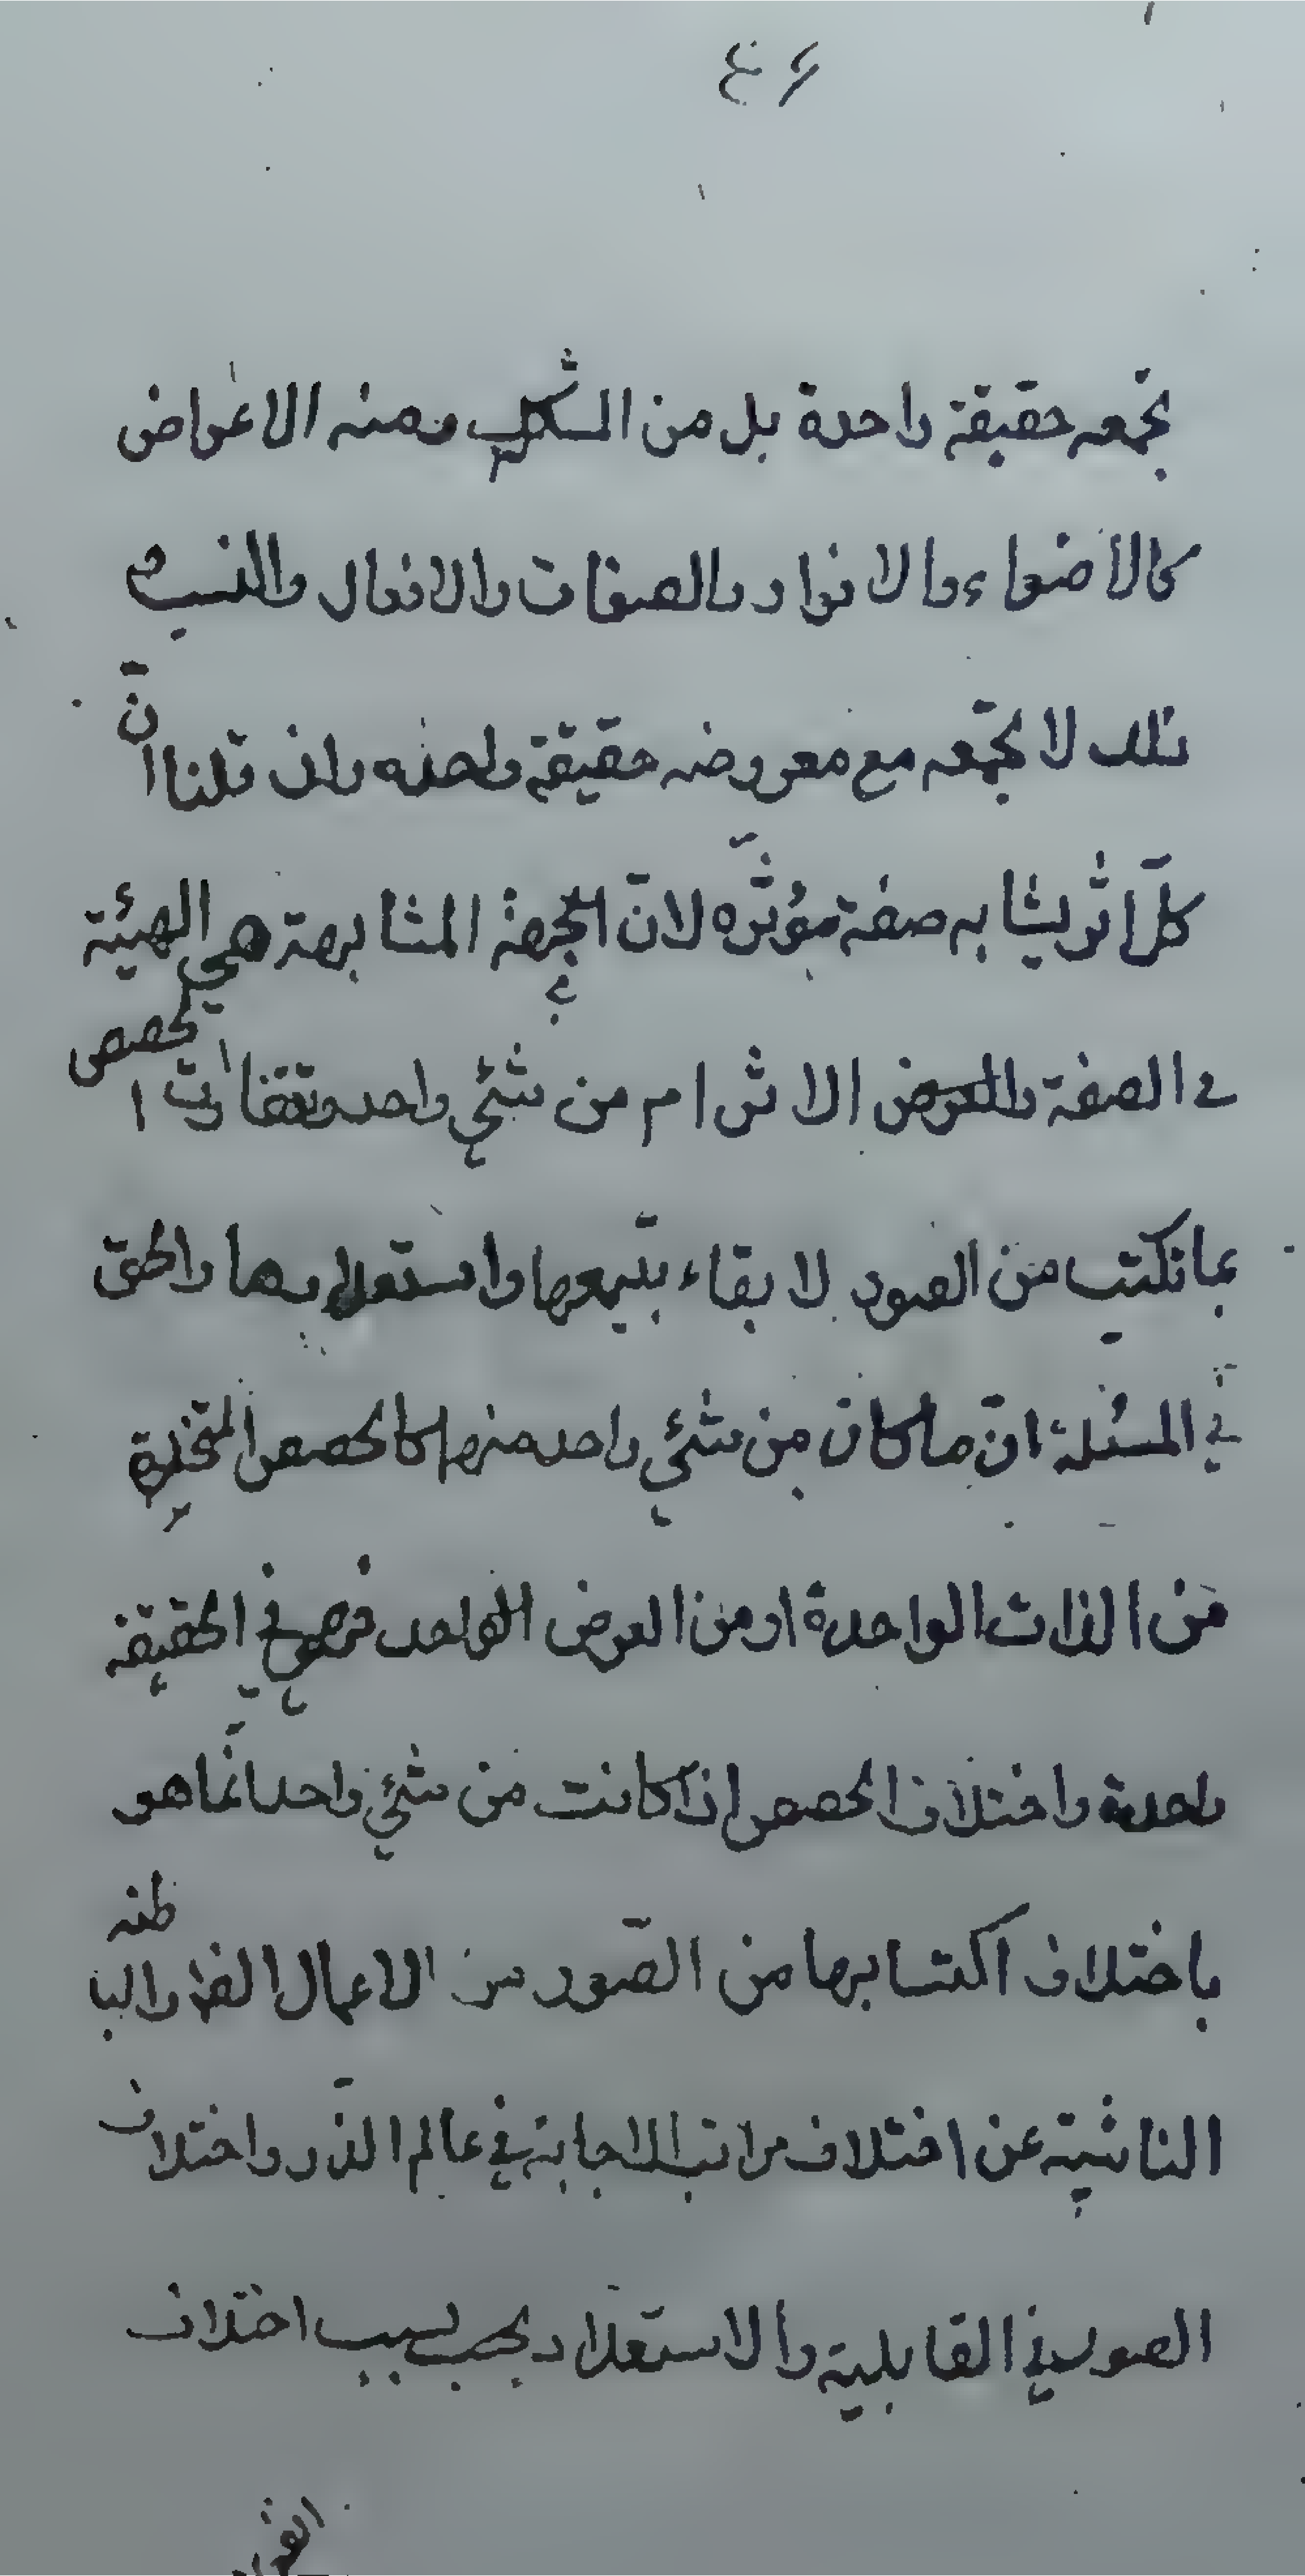 ٤٦
تجمعه حقيقة واحدة بل من الشكل ومنه الاعراض
كالاضواء والانوار والصفات والافعال والنسب و
تلك لا تجمعه مع معروضه حقيقة واحدة وان قلنا انّ
كلّ اثر يشابه صفة مؤثّره لانّ الجهة المشابهة هي الهيئة
في الصفة والعرض الاثر ام من شئي واحد وتتفاوت الحصص
بما تكتب من الصور لا بقاء بتّبعها واستعداد بها والحق
في المسئلة انّ ما كان من شئي واحد منها كالحصص المتخذة
من الذات الواحدة او من العرض الواحد فهو في الحقيقة
واحدة واختلاف الحصص اذا كانت من شئي واحد انّما هو
باختلاف اكتسابها من الصّور من الاعمال الظاهرة والباطنه
الناشية عن اختلاف مراتب الاجابة في عالم الذّر واختلاف
الصور في القابلية والاستعداد بحسب سبب اختلاف